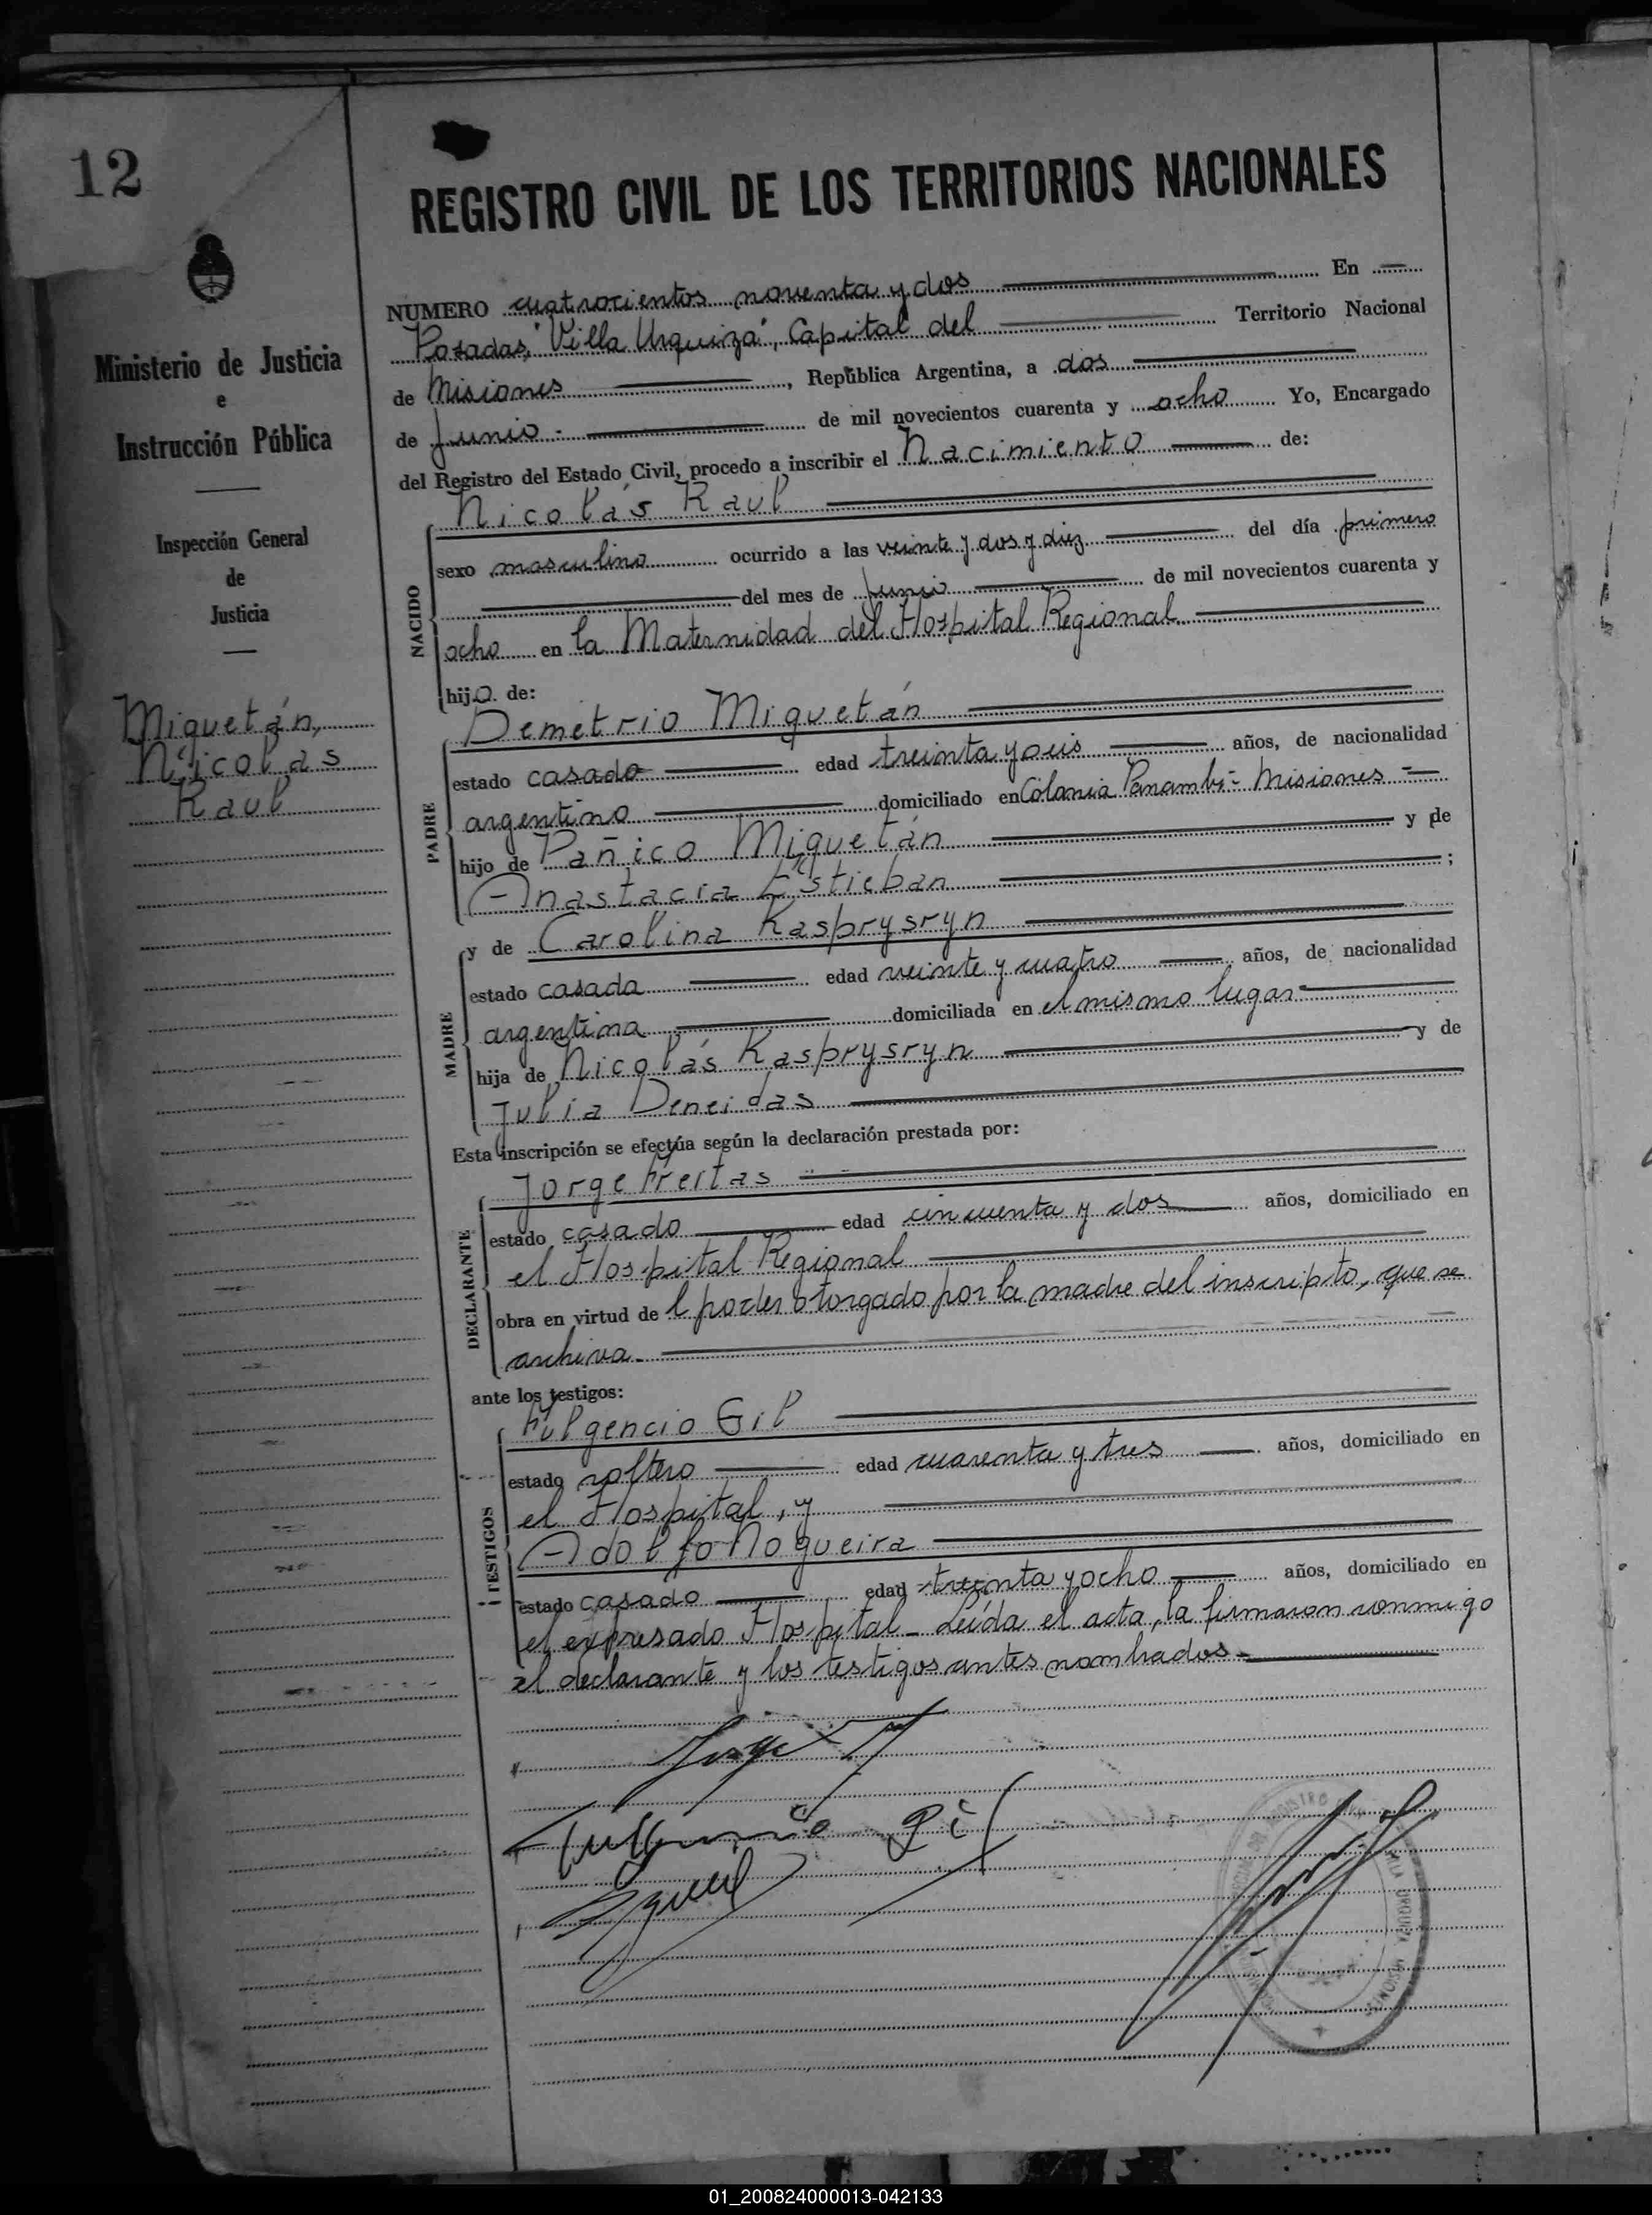 12
REGISTRO CIVIL DE LOS TERRITORIOS NACIONALES
Ministerio de Justicia
e
Instrucción Pública
Inspección General
de
Justicia
Miguetán,
Nicolás
Raul
NUMERO cuatrocientos noventa y dos En
Posadas, "Villa Urquiza", Capital del Territorio Nacional
de Misiones, República Argentina, a dos
de Junio de mil novecientos cuarenta y ocho Yo, Encargado
del Registro del Estado Civil, procedo a inscribir el Nacimiento de:
NACIDO
Nicolás Raul
sexo masculino ocurrido a las veinte y dos y diez del día primero
del mes de Junio de mil novecientos cuarenta y
ocho en la Maternidad del Hospital Regional
hijo de:
PADRE
Demetrio Miguetán
estado casado edad treinta y seis años, de nacionalidad
argentino domiciliado en Colonia Panambí - Misiones
hijo de Pañico Miguetán y de
Anastacia Estieban;
MADRE
y de Carolina Kasprysryn
estado casada edad veinte y cuatro años, de nacionalidad
argentina domiciliada en el mismo lugar
hija de Nicolás Kasprysryn y de
Julia Deneidas
Esta inscripción se efectúa según la declaración prestada por:
DECLARANTE
Jorge Freitas
estado casado edad cincuenta y dos años, domiciliado en
el Hospital Regional
obra en virtud de l poder otorgado por la madre del inscripto, que se
archiva.
ante los testigos:
TESTIGOS
Fulgencio Gil
estado soltero edad cuarenta y tres años, domiciliado en
el Hospital, y
Adolfo Nogueira
estado casado edad treinta y ocho años, domiciliado en
el expresado Hospital - Leída el acta, la firmaron conmigo
el declarante y los testigos antes nombrados -
Jorge
Fulgencio Gil
VILLA URQUIZA MISIONES
01_200824000013-042133